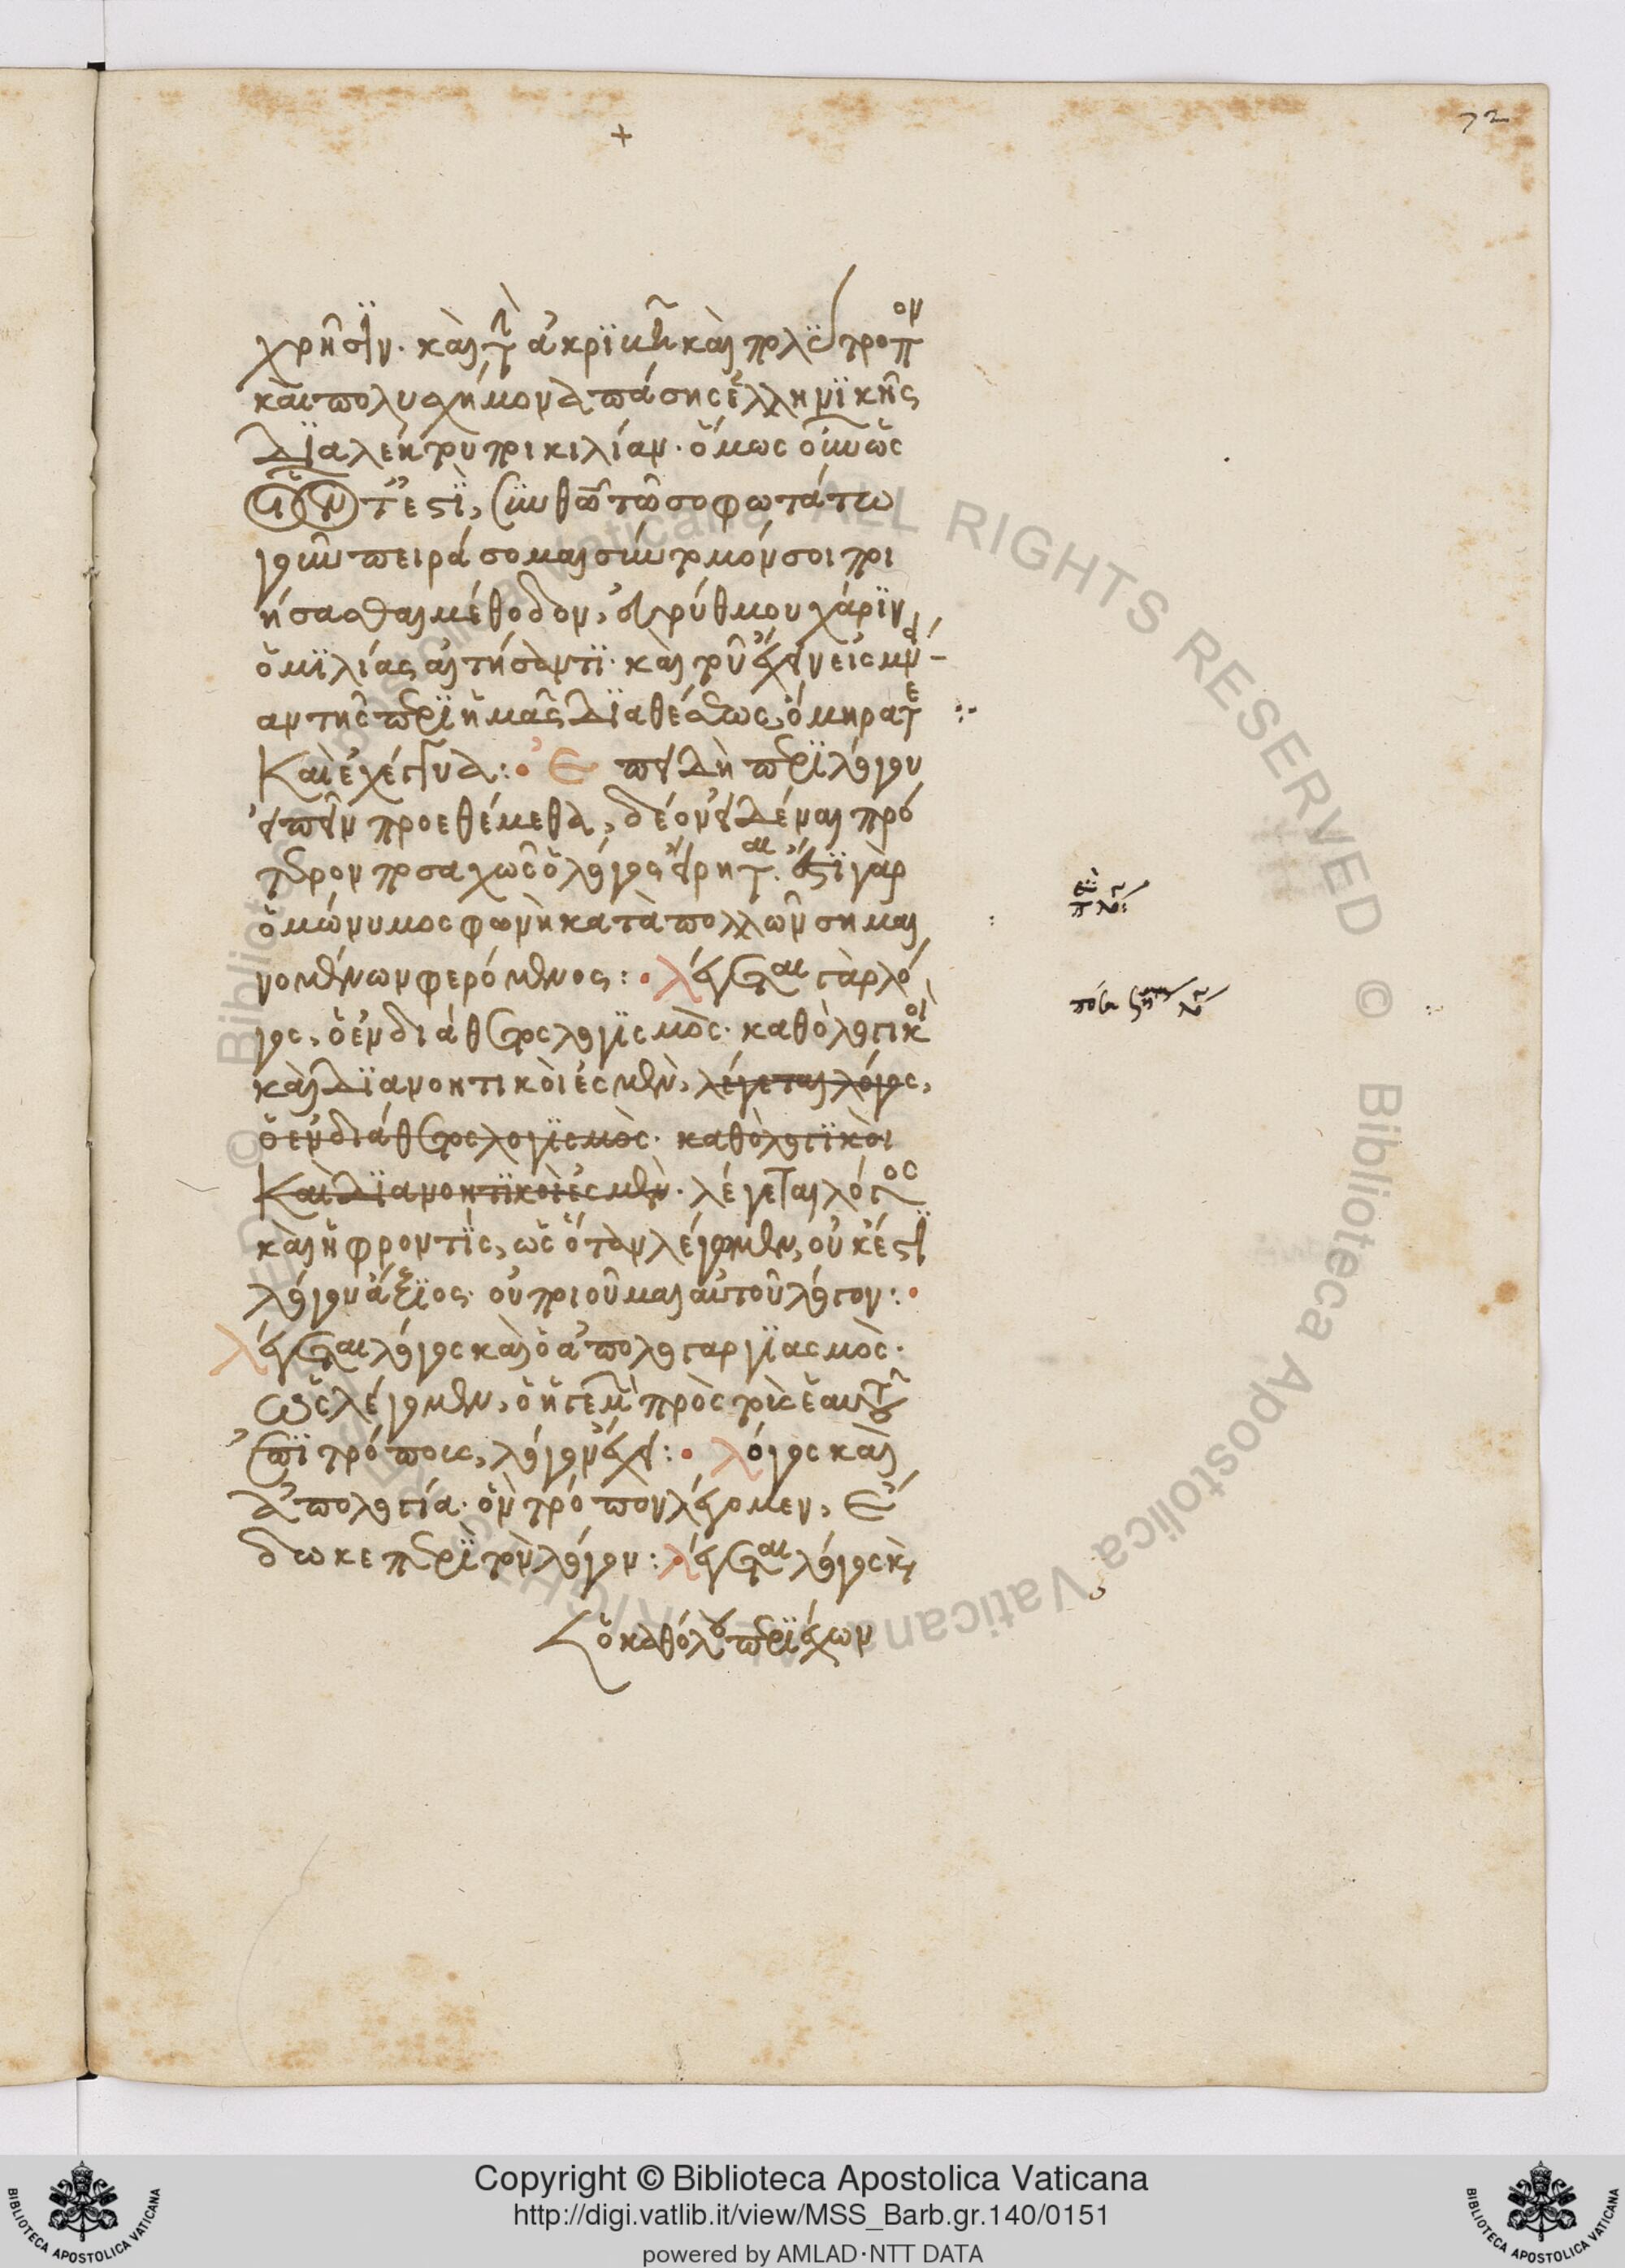 +
72
χρῆσϊν. καὶ τὴν ἀκρϊβῆ καὶ πολύτροπον
καὶ πολυσχήμονα πάσης ἑλληνϊκῆς
Δϊαλέκτου ποικιλίαν. ὅμως
τῷ σοφωτάτω
πειράσομαι σύντομόν σοι ποι
ήσασθαι μέθοδον, χάρϊν
ὁμϊλίας αἰτήσαντϊ. καὶ τοῦ ἔχειν εἰς
ἡμᾶς Δϊαθέσεως,
Καὶ ἐχέγγυα:· Ἐπειδὴ περὶ λόγου
εἰπεῖν προεθέμεθα, δέον εἰδέναι πρό
τερον ποσαχῶς ὁ λόγος εἴρηται. ἔστϊ γὰρ
ὁμώνυμος φωνὴ κατὰ πολλῶν σημαι
νομένων φερόμενος:· λέγεται γὰρ λό
γος, ὁ ἐνδιάθετος λογϊσμὸς. καθὸ λογικοὶ
καὶ Δϊανοητικοὶ ἐσμὲν, λέγεται λόγος,
ὁ ἐνδιάθετος λογϊσμὸς. καθὸ λογϊκοὶ
Καὶ Δϊανοητϊκοὶ ἐσμὲν. λέγεται λόγος
καὶ ἡ φροντὶς, ὡς ὅταν λέγομεν, οὐκ ἔστι
λόγου ἄξϊος. οὐ ποιοῦμαι αὐτοῦ λόγον:·
λέγεται λόγος καὶ ὁ ἀπολογαργϊασμὸς.
ὡς λέγομεν, ὁ ἡγεμὼν πρὸς τοὺς ἑαυτοῦ
ἐπϊτρόπους, λόγον ἔχει:· λόγος καὶ
Ἀπολογία. ὃν τρόπον λέγομεν, Ἔ
δωκε περὶ τούτου λόγον: λέγεται λόγος κὶ
ὁ καθόλου περϊέχων
Copyright © Biblioteca Apostolica Vaticana
http://digi.vatlib.it/view/MSS_Barb.gr.140/0151
powered by AMLAD·NTT DATA
BIBLIOTECA APOSTOLICA VATICANA
BIBLIOTECA APOSTOLICA VATICANA
© Biblioteca Apostolica Vaticana ALL RIGHTS RESERVED